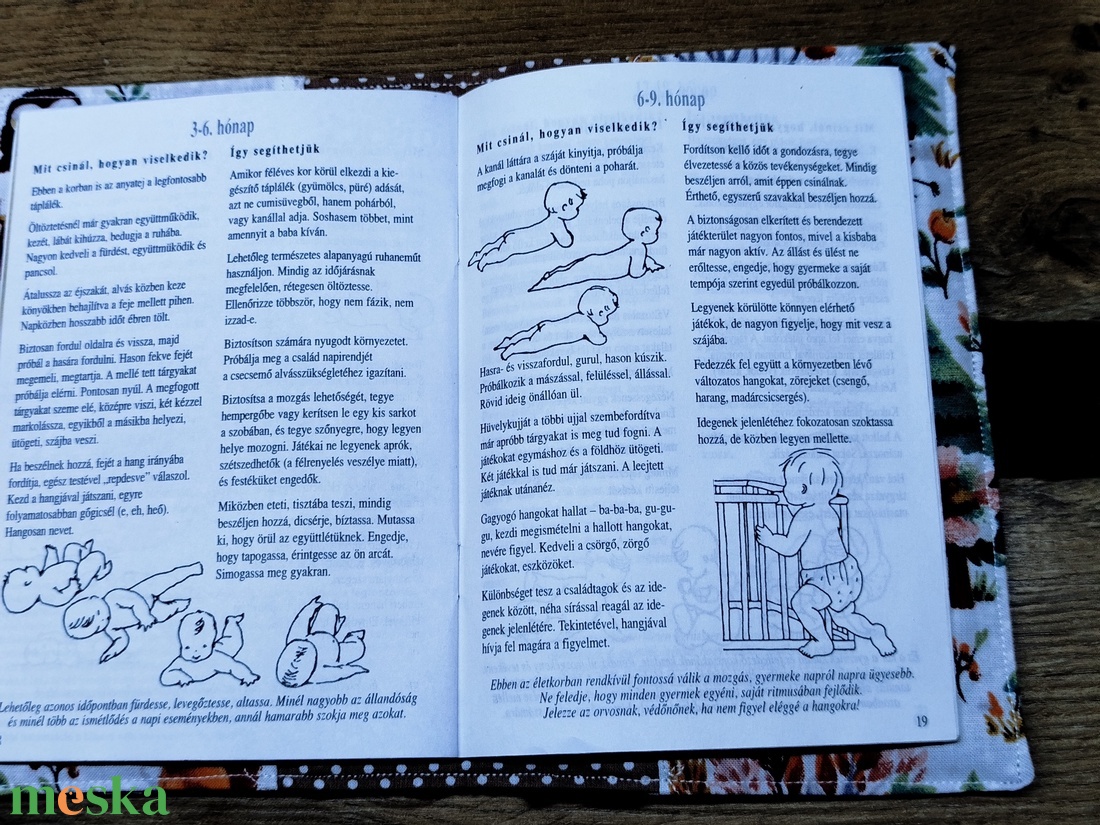 3-6. hónap
Mit csinál, hogyan viselkedik?
Ebben a korban is az anyatej a legfontosabb
táplálék.
Öltöztetésnél már gyakran együttműködik,
kezét, lábát kihúzza, bedugja a ruhába.
Nagyon kedveli a fürdést, együttműködik és
pancsol.
Átalussza az éjszakát, alvás közben keze
könyökben behajlítva a feje mellett pihen.
Napközben hosszabb időt ébren tölt.
Biztosan fordul oldalra és vissza, majd
próbál a hasára fordulni. Hason fekve fejét
megemeli, megtartja. A mellé tett tárgyakat
próbálja elérni. Pontosan nyúl. A megfogott
tárgyakat szeme elé, középre viszi, két kézzel
markolássza, egyikből a másikba helyezi,
ütögeti, szájba veszi.
Ha beszélnek hozzá, fejét a hang irányába
fordítja, egész testével „repdesve” válaszol.
Kezd a hangjával játszani, egyre
folyamatosabban gőgicsél (e, eh, heő).
Hangosan nevet.
Így segíthetjük
Amikor féléves kor körül elkezdi a kie-
gészítő táplálék (gyümölcs, püré) adását,
azt ne cumisüvegből, hanem pohárból,
vagy kanállal adja. Soshasem többet, mint
amennyit a baba kíván.
Lehetőleg természetes alapanyagú ruhaneműt
használjon. Mindig az időjárásnak
megfelelően, rétegesen öltöztesse.
Ellenőrizze többször, hogy nem fázik, nem
izzad-e.
Biztosítson számára nyugodt környezetet.
Próbálja meg a család napirendjét
a csecsemő alvásszükségletéhez igazítani.
Biztosítsa a mozgás lehetőségét, tegye
hempergőbe vagy kerítsen le egy kis sarkot
a szobában, és tegye szőnyegre, hogy legyen
helye mozogni. Játékai ne legyenek aprók,
szétszedhetők (a félrenyelés veszélye miatt),
és festéküket engedők.
Miközben eteti, tisztába teszi, mindig
beszéljen hozzá, dicsérje, bíztassa. Mutassa
ki, hogy örül az együttlétüknek. Engedje,
hogy tapogassa, érintgesse az ön arcát.
Simogassa meg gyakran.
Lehetőleg azonos időpontban fürdesse, levegőztesse, altassa. Minél nagyobb az állandóság
és minél több az ismétlődés a napi eseményekben, annál hamarabb szokja meg azokat.
6-9. hónap
Mit csinál, hogyan viselkedik?
A kanál láttára a száját kinyitja, próbálja
megfogi a kanalát és dönteni a poharát.
Hasra- és visszafordul, gurul, hason kúszik.
Próbálkozik a mászással, felüléssel, állással.
Rövid ideig önállóan ül.
Hüvelykujját a többi ujjal szembefordítva
már apróbb tárgyakat is meg tud fogni. A
játékokat egymáshoz és a földhöz ütögeti.
Két játékkal is tud már játszani. A leejtett
játéknak utánanéz.
Gagyogó hangokat hallat – ba-ba-ba, gu-gu-
gu, kezdi megismételni a hallott hangokat,
nevére figyel. Kedveli a csörgő, zörgő
játékokat, eszközöket.
Különbséget tesz a családtagok és az ide-
genek között, néha sírással reagál az ide-
genek jelenlétére. Tekintetével, hangjával
hívja fel magára a figyelmet.
Így segíthetjük
Fordítson kellő időt a gondozásra, tegye
élvezetessé a közös tevékenységeket. Mindig
beszéljen arról, amit éppen csinálnak.
Érthető, egyszerű szavakkal beszéljen hozzá.
A biztonságosan elkerített és berendezett
játékterület nagyon fontos, mivel a kisbaba
már nagyon aktív. Az állást és ülést ne
erőltesse, engedje, hogy gyermeke a saját
tempója szerint egyedül próbálkozzon.
Legyenek körülötte könnyen elérhető
játékok, de nagyon figyelje, hogy mit vesz a
szájába.
Fedezzék fel együtt a környezetben lévő
változatos hangokat, zörejeket (csengő,
harang, madárcsicsergés).
Idegenek jelenlétéhez fokozatosan szoktassa
hozzá, de közben legyen mellette.
Ebben az életkorban rendkívül fontossá válik a mozgás, gyermeke napról napra ügyesebb.
Ne feledje, hogy minden gyermek egyéni, saját ritmusában fejlődik.
Jelezze az orvosnak, védőnőnek, ha nem figyel eléggé a hangokra!
19
meska